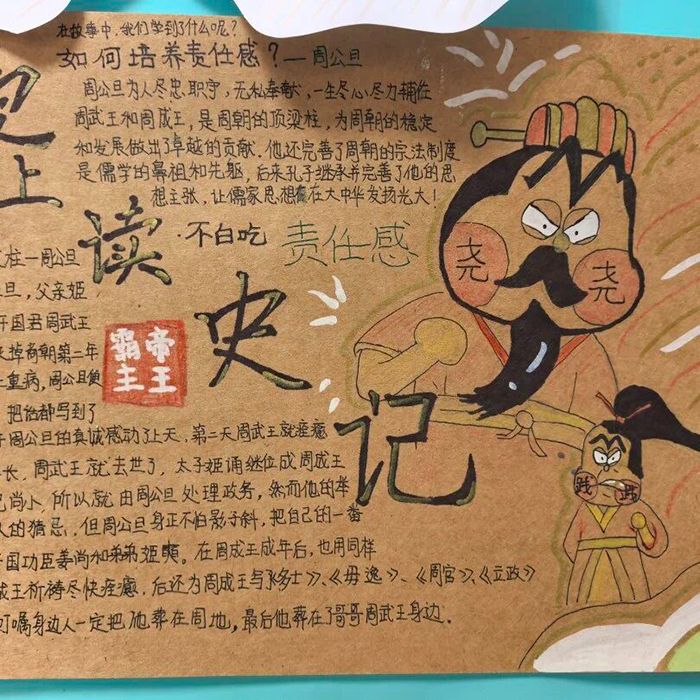 在故事中，我们学到了什么呢？
如何培养责任感？—周公旦
周公旦为人尽忠职守，无私奉献，一生尽心尽力辅佐
周武王和周成王，是周朝的顶梁柱，为周朝的稳定
和发展做出了卓越的贡献．他还完善了周朝的宗法制度
是儒学的鼻祖和先驱，后来孔子继承并完善了他的思
想主张，让儒家思想在大中华发扬光大！
上
读
史
记
·不白吃 责任感
霸帝
主王
尧
尧
柱—周公旦
旦，父亲姬
开国君周武王
掉商朝第二年
重病，周公旦
把话都写到了
周公旦的真诚感动了上天，第二天周武王就痊癒
长，周武王就去世了，太子姬诵继位成周成王
尚小，所以就由周公旦处理政务，然而他的举
人的猜忌，但周公旦身正不怕影子斜，把自己的一番
国功臣姜尚和弟弟姬奭。在周成王成年后，也用同样
成王祈祷尽快痊癒，后还为周成王与《多士》、《毋逸》、《周官》、《立政》
叮嘱身边人一定把他葬在周地，最后他葬在了哥哥周武王身边．